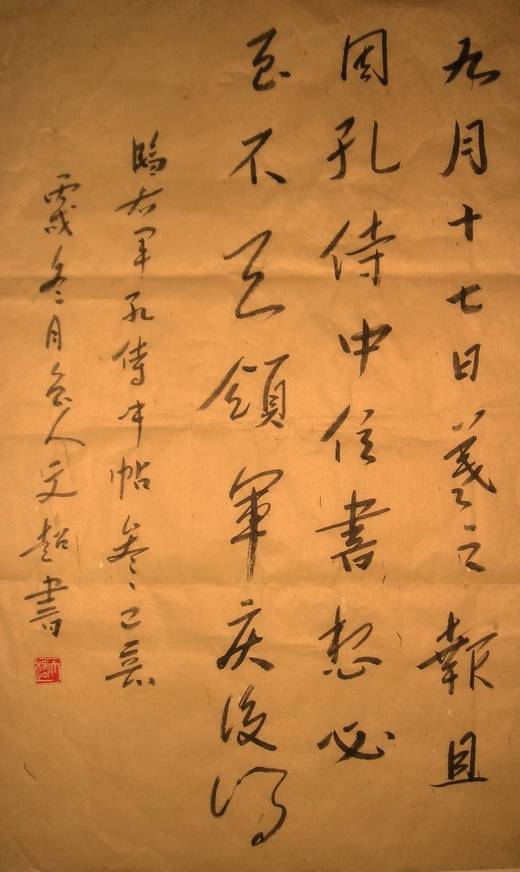 九月十七日羲之報且
因孔侍中信書想必
至不知領軍疾後問
臨右軍孔侍中帖參以己意
丙戌冬月人文超書